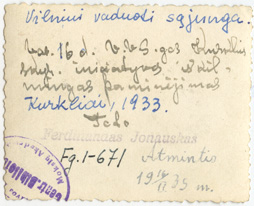 Vilniui vaduoti sąjunga.
Vas. 16 d. V.V.S.-gos Kurklių
skyr. iniciatyva iškil-
mingas paminėjimas
Kurkliai, 1933.
Foto
Ferdinandas Jonauskas
Fg.1-671 Atmintis
19 35 m.